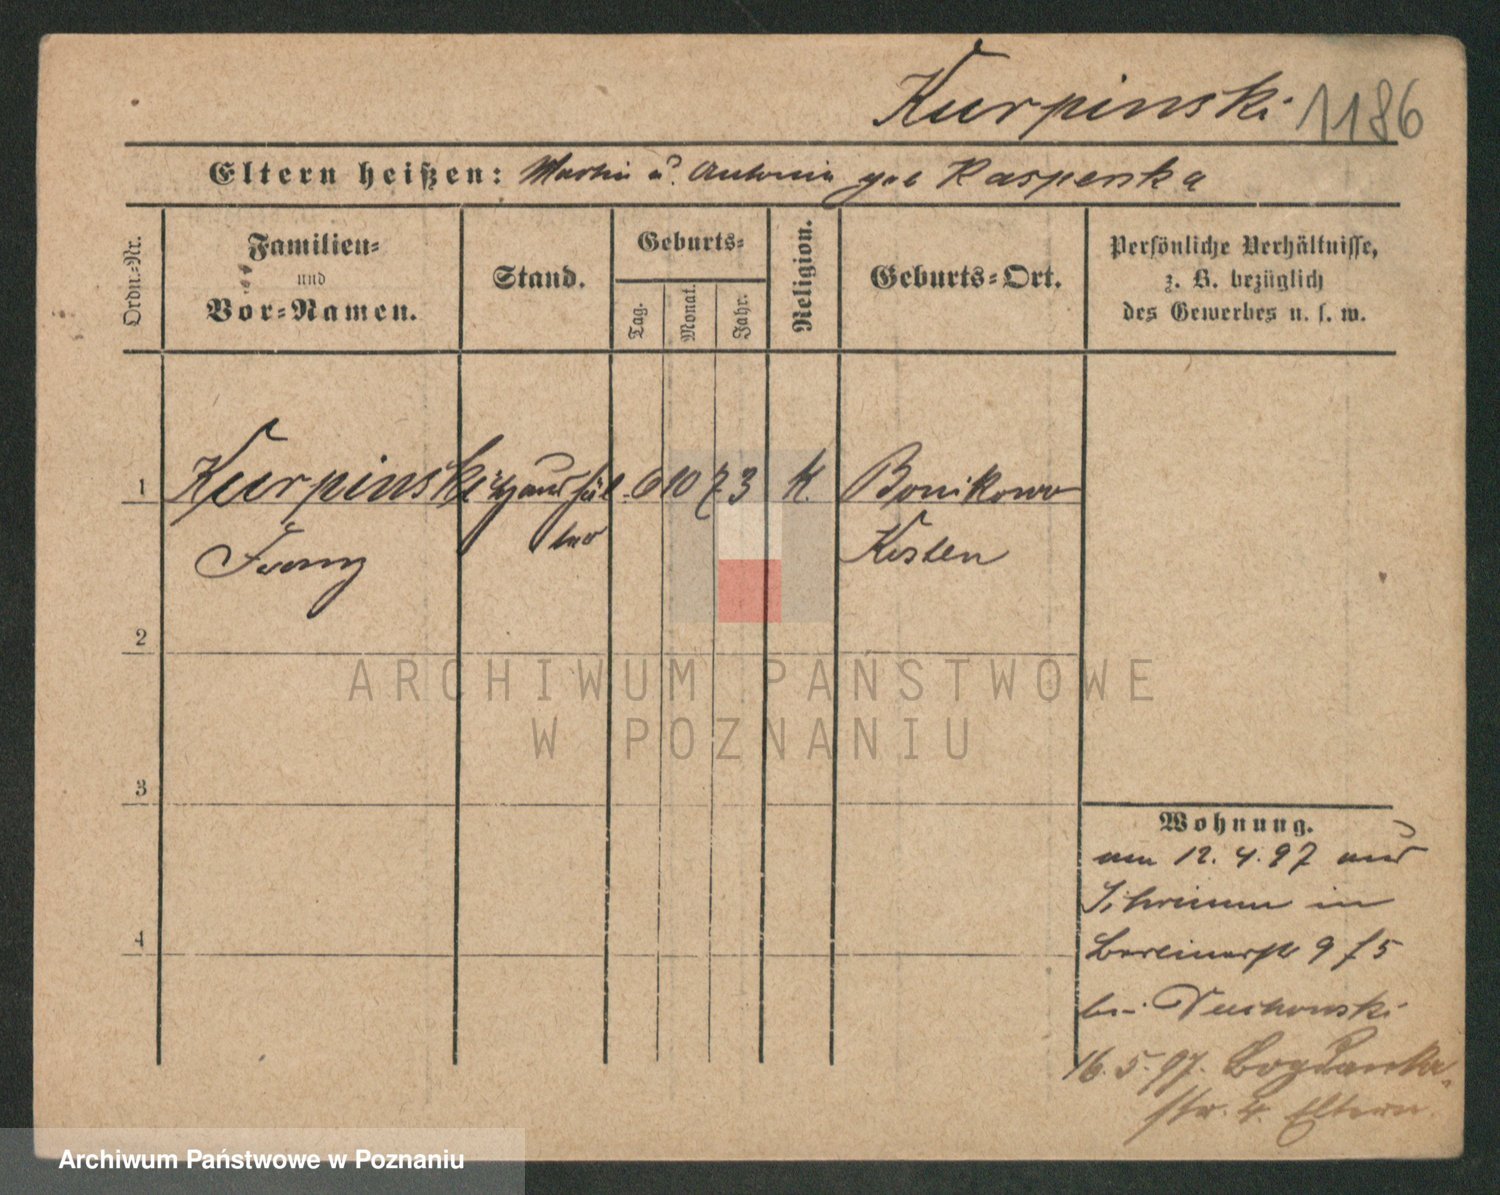 Kurpinski 1186
Eltern heißen: Martin u. Antonia geb Kasperska
Ordn.-Nr.
Familien-
und
Vor-Namen.
Stand.
Geburts-
Tag.
Monat.
Jahr.
Religion.
Geburts-Ort.
Persönliche Verhältnisse,
z. B. bezüglich
des Gewerbes u. s. w.
1 Kurpinski 6 10 73 k. Bonikowo
Franz Kosten
2
3
4
Wohnung.
am 12. 4. 97 aus
Schrimm in
Berlinerstr 9
bei
16. 5. 97. Bogdanka-
str. 4. Eltern.
ARCHIWUM PAŃSTWOWE
W POZNANIU
Archiwum Państwowe w Poznaniu